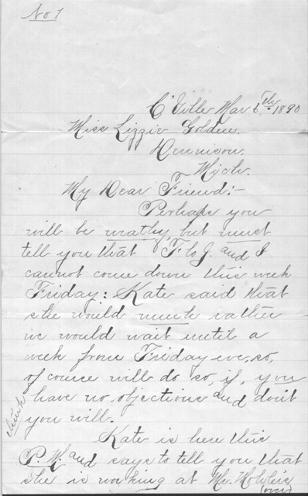 No 1
C'Ville Mar 5th 1890
Miss Lizzie Golden
Dennison
Mich.
My Dear Friend:-
Perhaps you
will be wrathy, but must
tell you that F. & J. and I
cannot come down this week
Friday: Kate said that
she would much rather
we would wait until a
week from Friday eve, so,
of course will do so, if, you
have no objections and don't
think
you will.
Kate is here this
P.M. and says to tell you that
she is working at Mr.
(over)